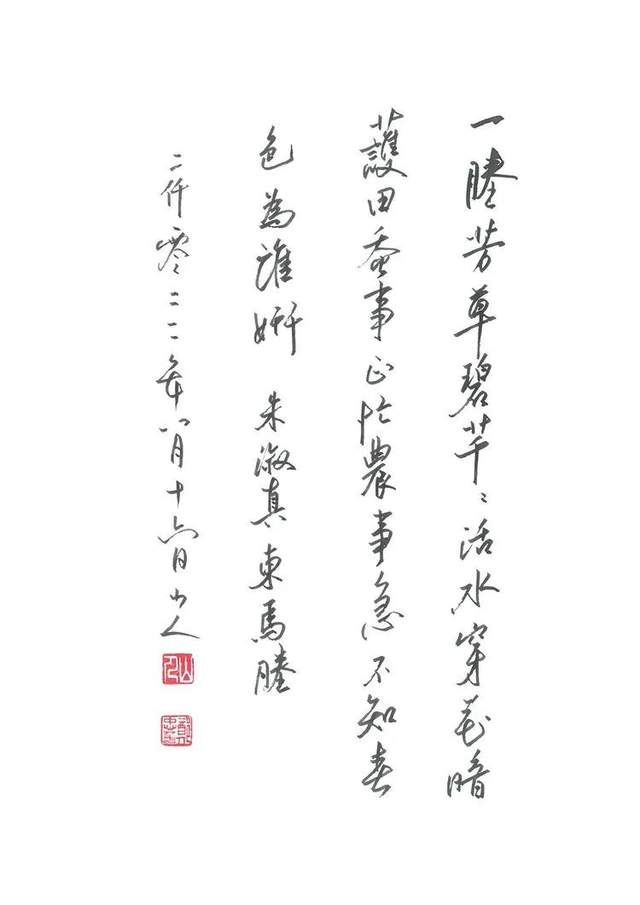 一塍芳草碧芊〻活水穿花暗
護田蚕事正忙農事急不知春
色為誰妍 朱淑真東馬塍
二仟零二二年八月十六日山人
山人